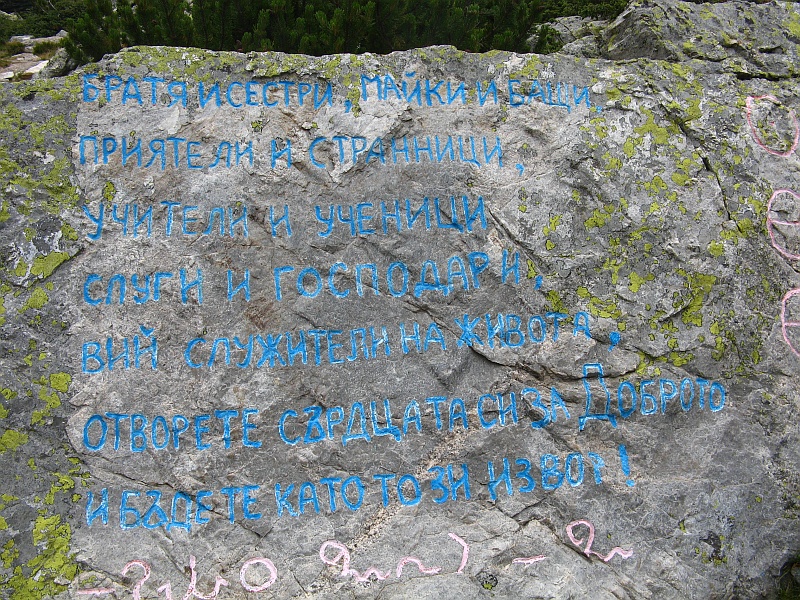 БРАТЯ И СЕСТРИ, МАЙКИ И БАЩИ,
ПРИЯТЕЛИ И СТРАННИЦИ,
УЧИТЕЛИ И УЧЕНИЦИ
СЛУГИ И ГОСПОДАРИ,
ВИЙ СЛУЖИТЕЛИ НА ЖИВОТА,
ОТВОРЕТЕ СЪРДЦАТА СИ ЗА ДОБРОТО
И БЪДЕТЕ КАТО ТОЗИ ИЗВОР!